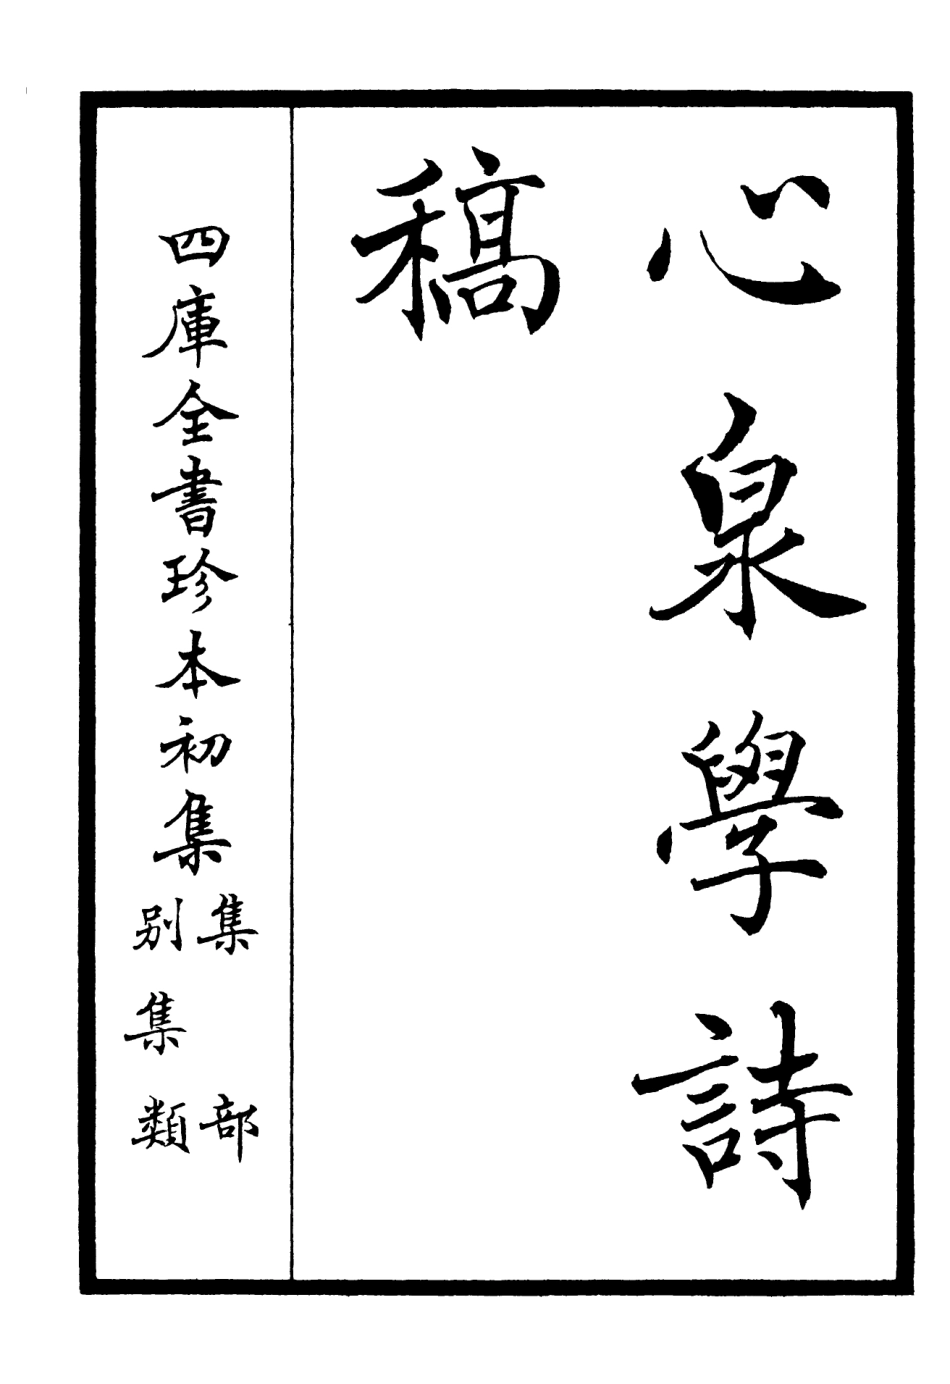 心泉學詩
稿
四庫全書珍本初集
集部
别集類